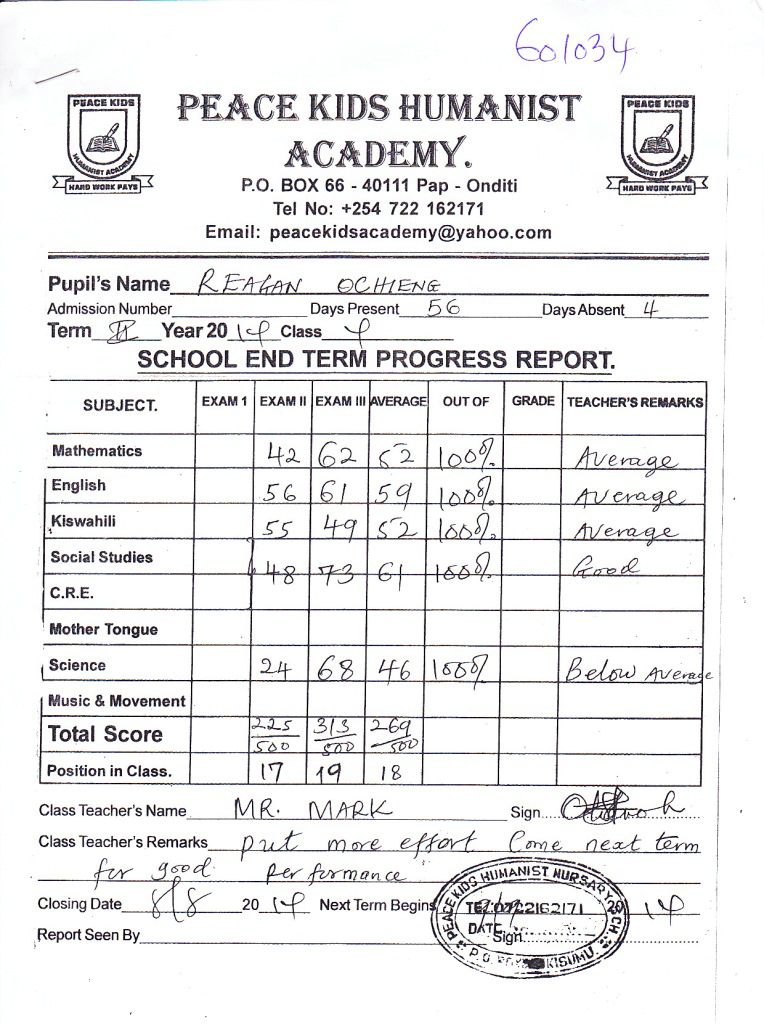 601034
PEACE KIDS
HUMANIST ACADEMY
HARD WORK PAYS
PEACE KIDS HUMANIST
ACADEMY.
PEACE KIDS
HUMANIST ACADEMY
HARD WORK PAYS
P.O. BOX 66 - 40111 Pap - Onditi
Tel No: +254 722 162171
Email: peacekidsacademy@yahoo.com
Pupil's Name REAGAN OCHIENG
Admission Number Days Present 56 Days Absent 4
Term II Year 2014 Class 4
SCHOOL END TERM PROGRESS REPORT.
SUBJECT. EXAM 1 EXAM II EXAM III AVERAGE OUT OF GRADE TEACHER'S REMARKS
Mathematics 42 62 52 100% Average
English 56 61 59 100% Average
Kiswahili 55 49 52 100% Average
Social Studies 48 73 61 100% Good
C.R.E.
Mother Tongue
Science 24 68 46 100% Below Average
Music & Movement
Total Score 225/500 313/500 269/500
Position in Class. 17 19 18
Class Teacher's Name MR. MARK Sign
Class Teacher's Remarks put more effort Come next term
for good performance
Closing Date 8/8 2014 Next Term Begins 2014
Report Seen By Sign
PEACE KIDS HUMANIST NURSARY SCH.
TEL:0722162171
DATE
P.O. KISUMU.